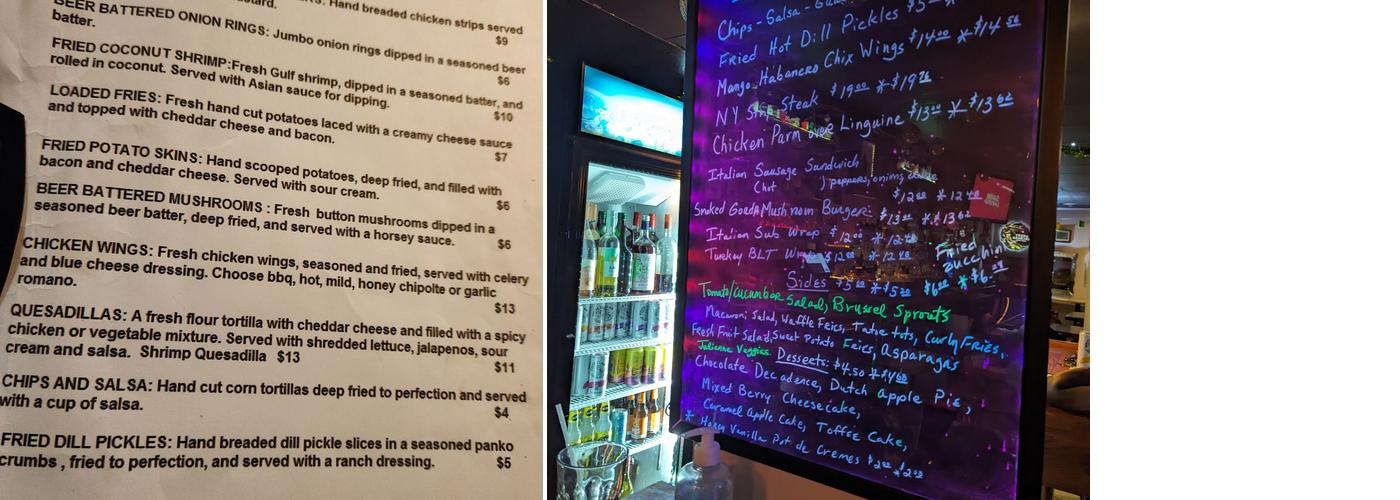 Hand breaded chicken strips served
$9
BEER BATTERED ONION RINGS: Jumbo onion rings dipped in a seasoned beer
batter.
$6
FRIED COCONUT SHRIMP:Fresh Gulf shrimp, dipped in a seasoned batter, and
rolled in coconut. Served with Asian sauce for dipping.
$10
LOADED FRIES: Fresh hand cut potatoes laced with a creamy cheese sauce
and topped with cheddar cheese and bacon.
$7
FRIED POTATO SKINS: Hand scooped potatoes, deep fried, and filled with
bacon and cheddar cheese. Served with sour cream.
$6
BEER BATTERED MUSHROOMS : Fresh button mushrooms dipped in a
seasoned beer batter, deep fried, and served with a horsey sauce.
$6
CHICKEN WINGS: Fresh chicken wings, seasoned and fried, served with celery
and blue cheese dressing. Choose bbq, hot, mild, honey chipolte or garlic
romano.
$13
QUESADILLAS: A fresh flour tortilla with cheddar cheese and filled with a spicy
chicken or vegetable mixture. Served with shredded lettuce, jalapenos, sour
cream and salsa. Shrimp Quesadilla $13
$11
CHIPS AND SALSA: Hand cut corn tortillas deep fried to perfection and served
with a cup of salsa.
$4
FRIED DILL PICKLES: Hand breaded dill pickle slices in a seasoned panko
crumbs , fried to perfection, and served with a ranch dressing.
$5
Chips - Salsa -
Fried Hot Dill Pickles $5
Mango Habanero Chix Wings $14.00 * $14.56
NY Strip Steak $19.00 * $19.76
Chicken Parm over Linguine $13.00 * $13.62
Italian Sausage Sandwich
(hot ) peppers, onions
$12.00 * 12.48
Smoked Goudа Mushroom Burger: $13.00 * $13.62
Italian Sub Wrap $12.00 * 12.48
Turkey BLT Wrap $12.00 * 12.48
Fried
zucchini
$6.00 * $6.
Sides $5.00 * $5.20
Tomato/cucumber Salad, Brussel Sprouts
Macaroni Salad, Waffle Feies, Tator tots, Curly FRIES,
Fresh Fruit Salad, Sweet Potato Feies, Asparagas
Julienne Veggies
Desserts: $4.50 * $4.68
Chocolate Decadence, Dutch apple Pie,
Mixed Berry Cheesecake,
Caramel Apple Cake, Toffee Cake,
* Honey Vanilla Pot de Cremes $2.00 * $2.08